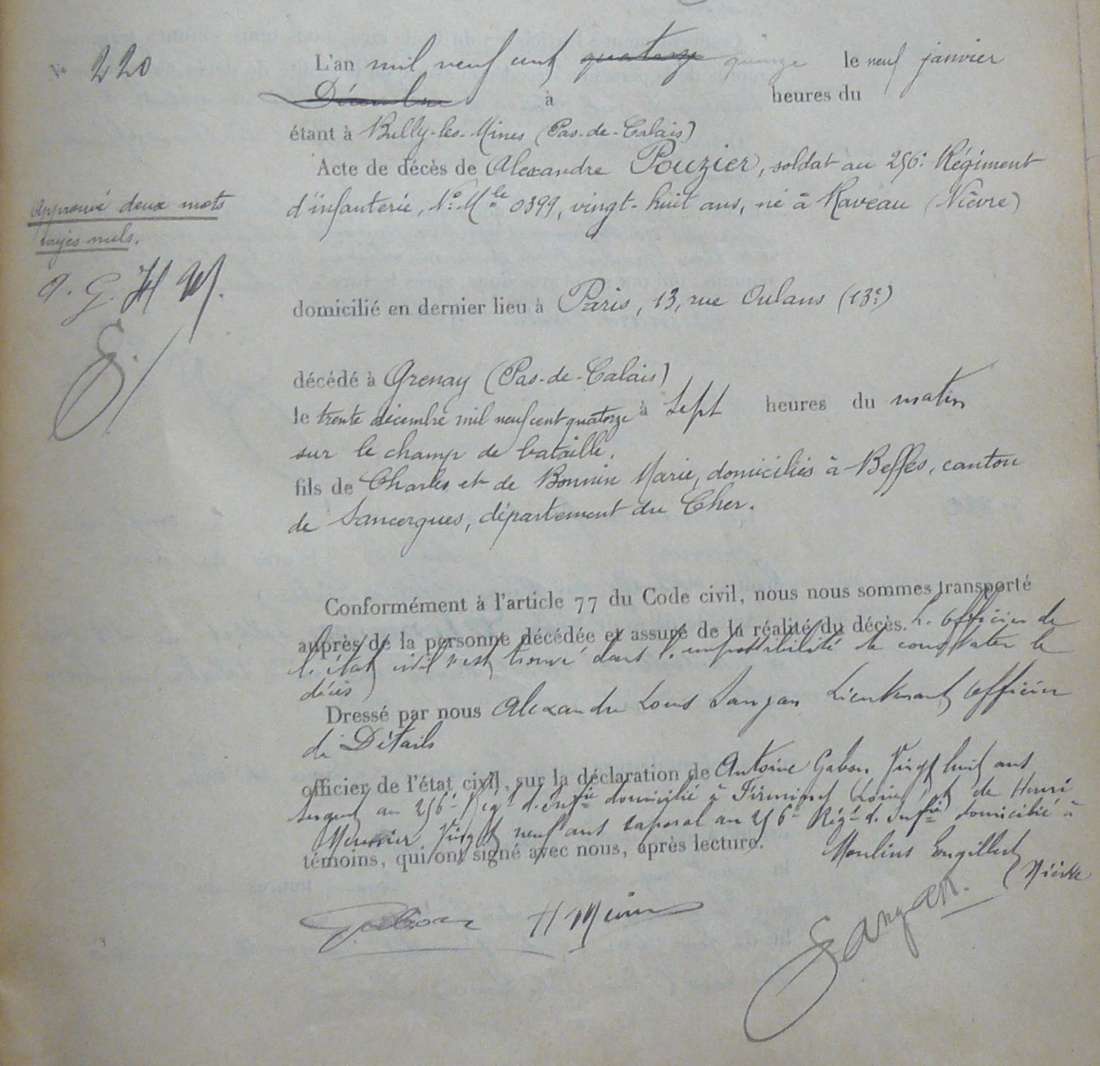 N° 220
L'an mil neuf cent quatorze quinze le neuf janvier
Décembre à heures du
étant à Bully-les-Mines (Pas-de-Calais)
Acte de décès de Alexandre Pouzier, soldat au 256e Régiment
d'infanterie, N° Mle 0399, vingt-huit ans, né à Raveau (Nièvre)
Approuvé deux mots
rayés nuls.
A. G. H M.
domicilié en dernier lieu à Paris, 13, rue Oulans (13e)
décédé à Grenay (Pas-de-Calais)
le trente décembre mil neuf cent quatorze à sept heures du matin
sur le champ de bataille.
fils de Charles et de Bonnin Marie, domiciliés à Beffes, canton
de Sancergues, département du Cher.
Conformément à l'article 77 du Code civil, nous nous sommes transporté
auprès de la personne décédée et assuré de la réalité du décès. L'officier de
l'état civil s'est trouvé dans l'impossibilité de constater le
décès
Dressé par nous Alexandre Louis Sanzan Lieutenant officier
de Détails
officier de l'état civil, sur la déclaration de Antoine Gabon Vingt huit ans
sergent au 256e Regt d'infie domicilié à Firminy Loire et de Henri
Meunier Vingt neuf ans caporal au 256e Régt d'Infie domicilié à
témoins, qui ont signé avec nous, après lecture. Moulins Engilbert
(Nièvre
Gabon H Meunier
Sanzan.